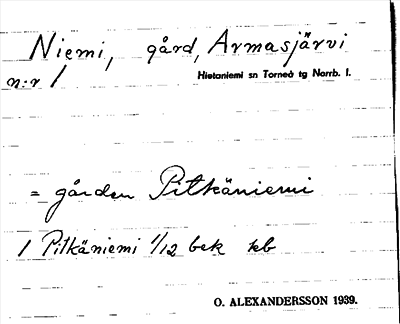 Niemi, gård, Armasjärvi
n:r 1 Hietaniemi sn Torneå tg Norrb. l.
= gården Pitkäniemi
1 Pitkäniemi 1/12 bek kb
O. ALEXANDERSSON 1939.